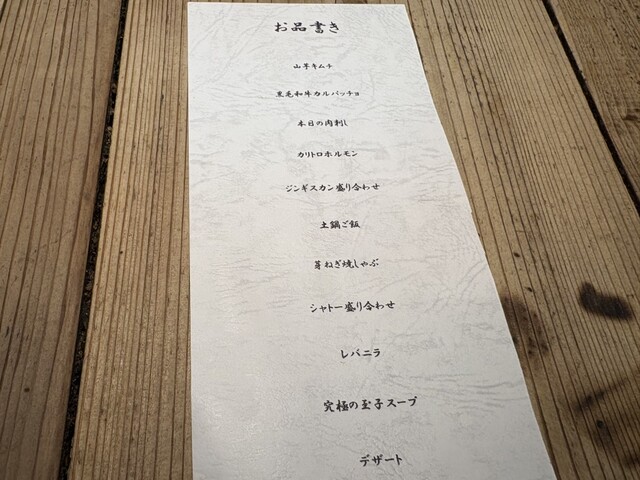 お品書き
山芋キムチ
黒毛和牛カルパッチョ
本日の肉刺し
カリトロホルモン
ジンギスカン盛り合わせ
土鍋ご飯
芽ねぎ焼しゃぶ
シャトー盛り合わせ
レバニラ
究極の玉子スープ
デザート